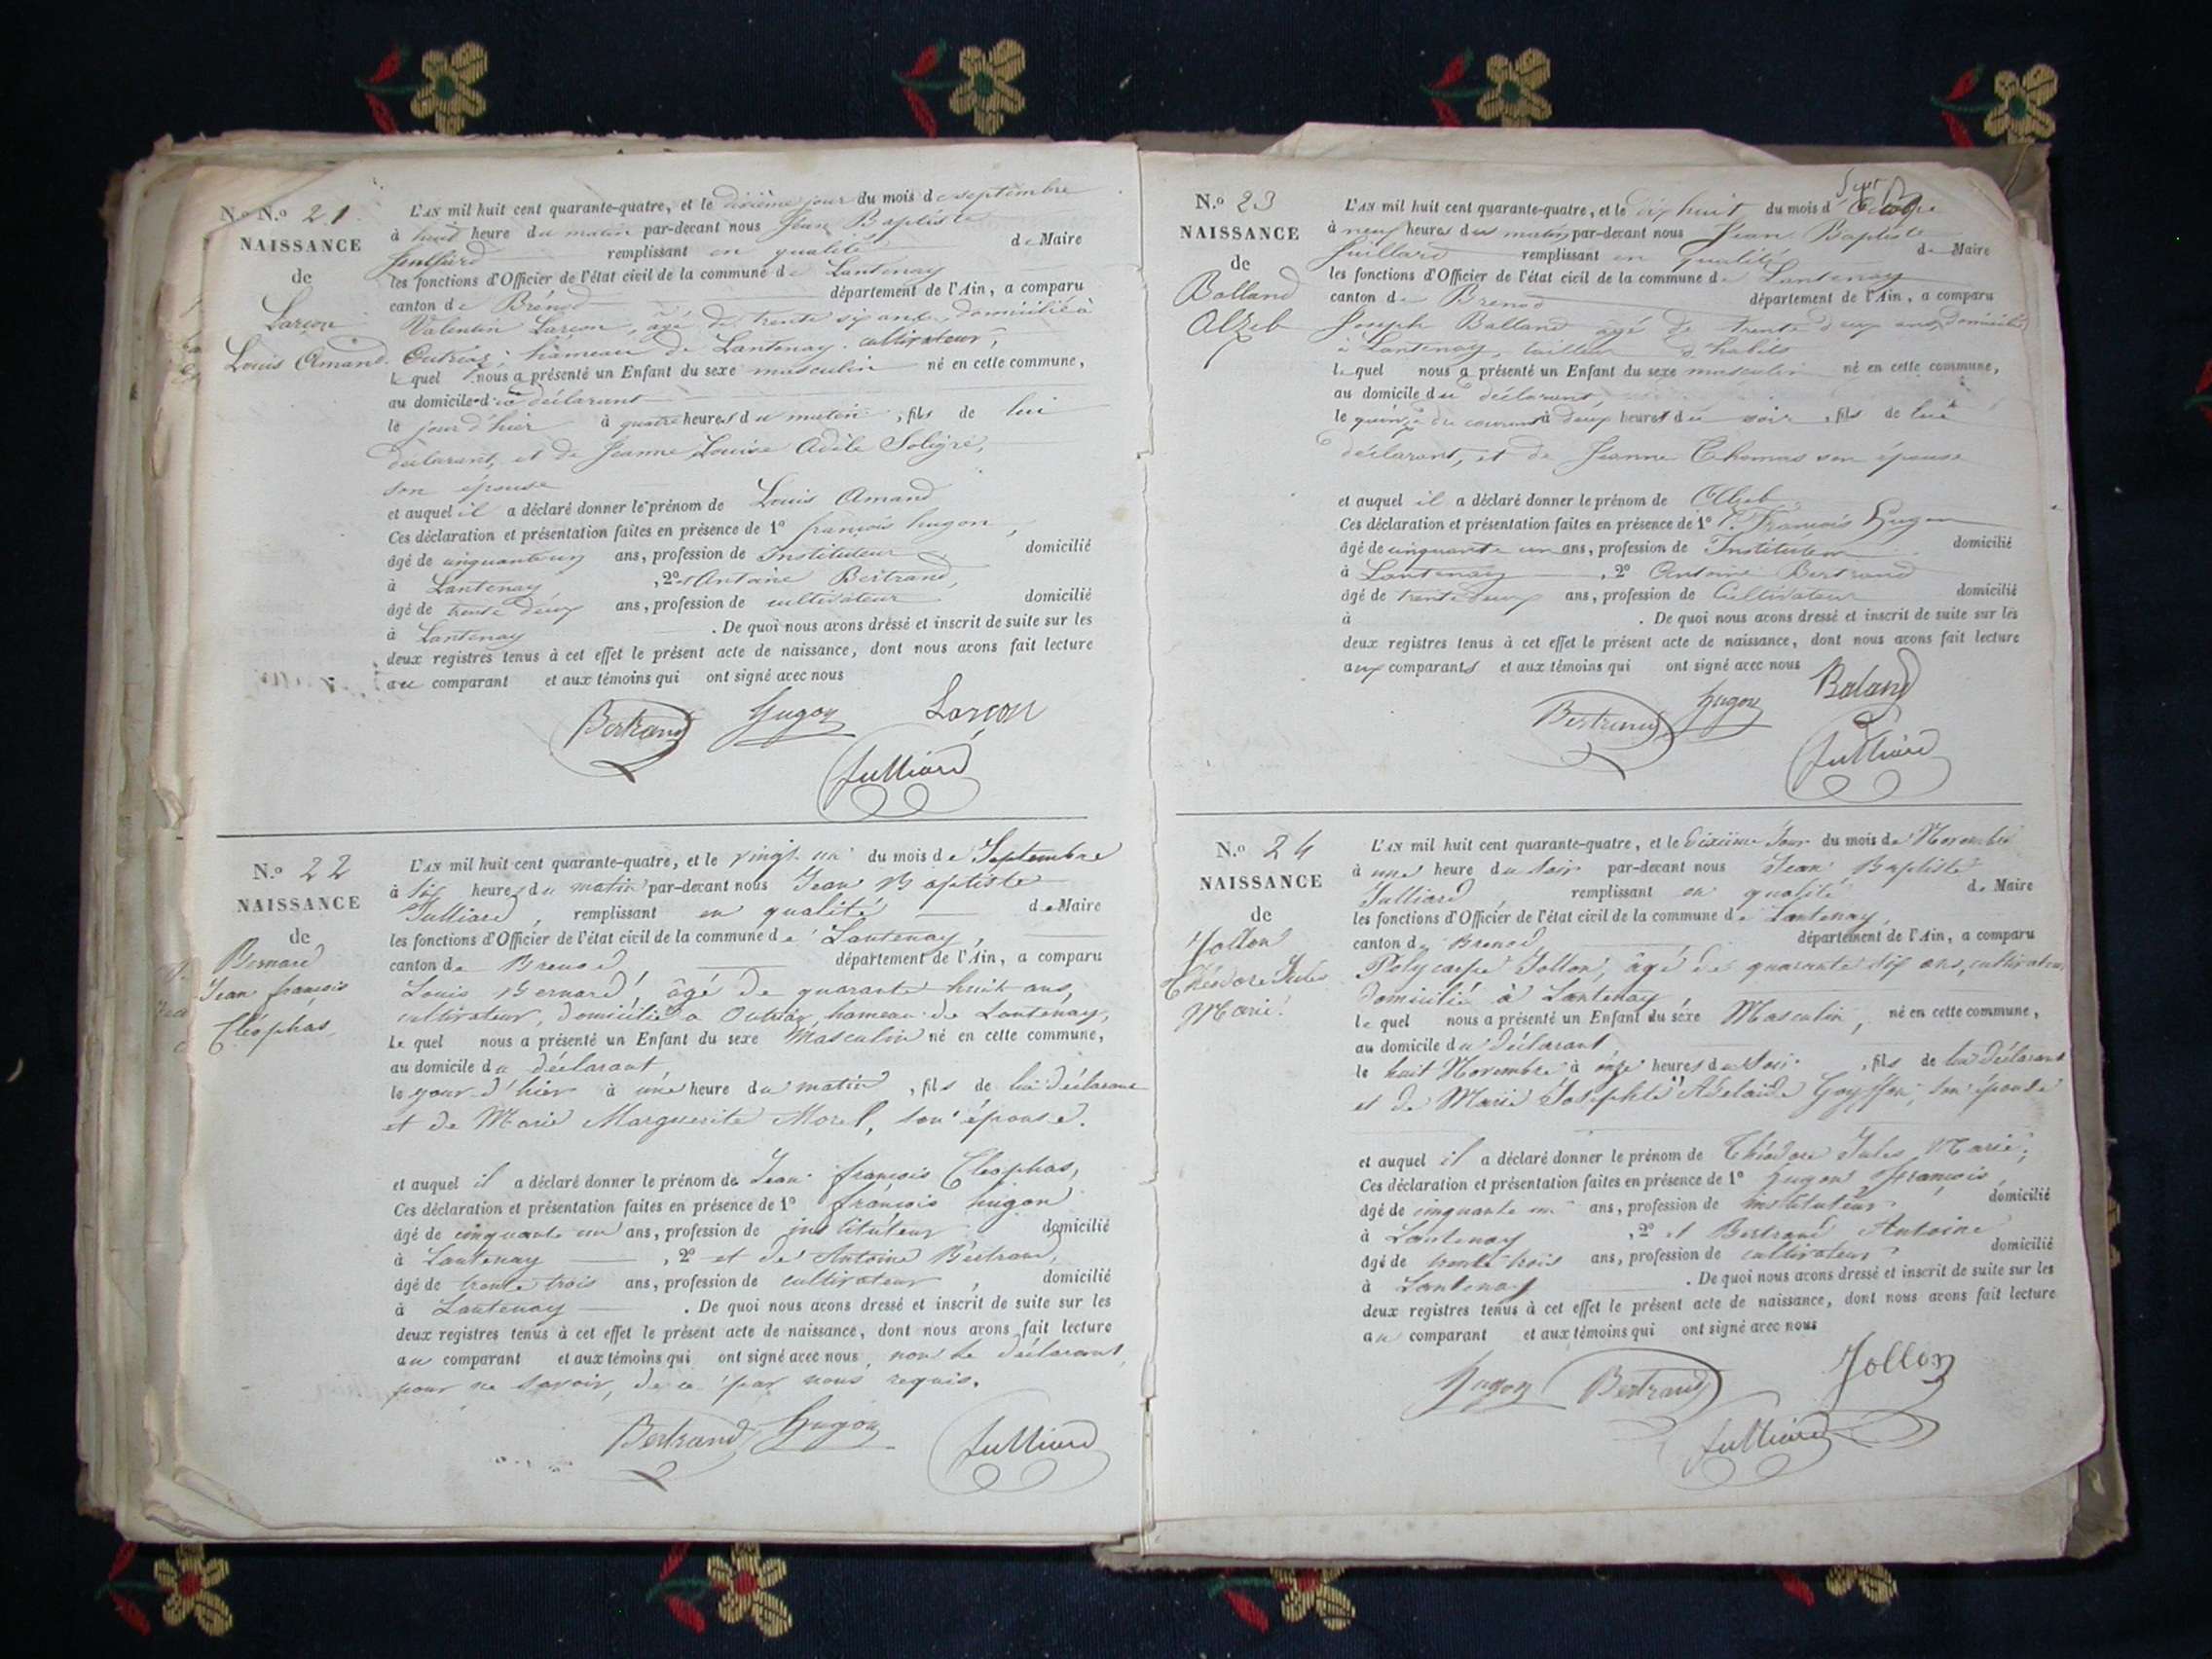 N.o N.o 21
NAISSANCE
de
Larçon
Louis Amand.
L'AN mil huit cent quarante-quatre, et le dixième jour du mois de septembre
à huit heure du matin par-devant nous Jean Baptiste
Julliard remplissant en qualité de Maire
les fonctions d'Officier de l'état civil de la commune de Lantenay
canton de Brénod département de l'Ain, a comparu
Valentin Larçon, âgé de trente six ans, domicilié à
Outriaz, hameau de Lantenay, cultivateur,
lequel nous a présenté un Enfant du sexe masculin né en cette commune,
au domicile du déclarant
le jour d'hier à quatre heures du matin, fils de lui
déclarant, et de Jeanne Louise Adèle
son épouse
et auquel il a déclaré donner le prénom de Louis Amand
Ces déclaration et présentation faites en présence de 1o françois hugon,
âgé de cinquante un ans, profession de Instituteur domicilié
à Lantenay, 2o et Antoine Bertrand,
âgé de trente deux ans, profession de cultivateur domicilié
à Lantenay. De quoi nous avons dressé et inscrit de suite sur les
deux registres tenus à cet effet le présent acte de naissance, dont nous avons fait lecture
au comparant et aux témoins qui ont signé avec nous
Bertrand Hugon Larçon
Julliard
N.o 22
NAISSANCE
de
Bernard
Jean françois
Cléophas,
L'AN mil huit cent quarante-quatre, et le vingt un du mois de Septembre
à six heures du matin par-devant nous Jean Baptiste
Julliard, remplissant en qualité de Maire
les fonctions d'Officier de l'état civil de la commune de Lantenay,
canton de Brenod département de l'Ain, a comparu
Louis Bernard, âgé de quarante huit ans,
cultivateur, domicilié à Outriaz, hameau de Lantenay,
Lequel nous a présenté un Enfant du sexe Masculin né en cette commune,
au domicile du déclarant
le jour d'hier à une heure du matin, fils de lui déclarant
et de Marie Marguerite Morel, son épouse.
et auquel il a déclaré donner le prénom de Jean françois Cléophas,
Ces déclaration et présentation faites en présence de 1o françois hugon
âgé de cinquante un ans, profession de instituteur domicilié
à Lantenay, 2o et de Antoine Bertrand,
âgé de trente trois ans, profession de cultivateur, domicilié
à Lantenay. De quoi nous avons dressé et inscrit de suite sur les
deux registres tenus à cet effet le présent acte de naissance, dont nous avons fait lecture
au comparant et aux témoins qui ont signé avec nous, non le déclarant,
pour ne savoir, de ce par nous requis.
Bertrand Hugon Julliard
N.o 23
NAISSANCE
de
Balland
Alzeb
L'AN mil huit cent quarante-quatre, et le dix huit du mois d'Octobre
à neuf heures du matin par-devant nous Jean Baptiste
Juillard remplissant en qualité de Maire
les fonctions d'Officier de l'état civil de la commune de Lantenay
canton de Brenod département de l'Ain, a comparu
Joseph Balland âgé de trente deux ans, domicilié
à Lantenay, tailleur d'habits
lequel nous a présenté un Enfant du sexe masculin né en cette commune,
au domicile du déclarant,
le quinze du courant à deux heures du soir, fils de lui
déclarant, et de Jeanne Thomas son épouse
et auquel il a déclaré donner le prénom de Alzeb
Ces déclaration et présentation faites en présence de 1o François Hugon
âgé de cinquante un ans, profession de Instituteur domicilié
à Lantenay, 2o Antoine Bertrand
âgé de trente deux ans, profession de Cultivateur domicilié
à . De quoi nous avons dressé et inscrit de suite sur les
deux registres tenus à cet effet le présent acte de naissance, dont nous avons fait lecture
aux comparants et aux témoins qui ont signé avec nous
Bertrand Hugon Baland
Julliard
N.o 24
NAISSANCE
de
Jollon
Théodore Jules
Marie.
L'AN mil huit cent quarante-quatre, et le dixième Jour du mois de Novembre
à une heure du soir par-devant nous Jean Baptiste
Julliard, remplissant en qualité de Maire
les fonctions d'Officier de l'état civil de la commune de Lantenay,
canton de Brenod département de l'Ain, a comparu
Polycarpe Jollon, âgé de quarante six ans, cultivateur
domicilié à Lantenay
lequel nous a présenté un Enfant du sexe Masculin, né en cette commune,
au domicile du déclarant
le huit Novembre à onze heures du soir, fils de lui déclarant
et de Marie Josephte Adelaide son épouse
et auquel il a déclaré donner le prénom de Théodore Jules Marie;
Ces déclaration et présentation faites en présence de 1o hugon françois,
âgé de cinquante un ans, profession de instituteur, domicilié
à Lantenay, 2o et Bertrand Antoine
âgé de trente trois ans, profession de cultivateur domicilié
à Lantenay. De quoi nous avons dressé et inscrit de suite sur les
deux registres tenus à cet effet le présent acte de naissance, dont nous avons fait lecture
au comparant et aux témoins qui ont signé avec nous
Hugon Bertrand Jollon
Julliard